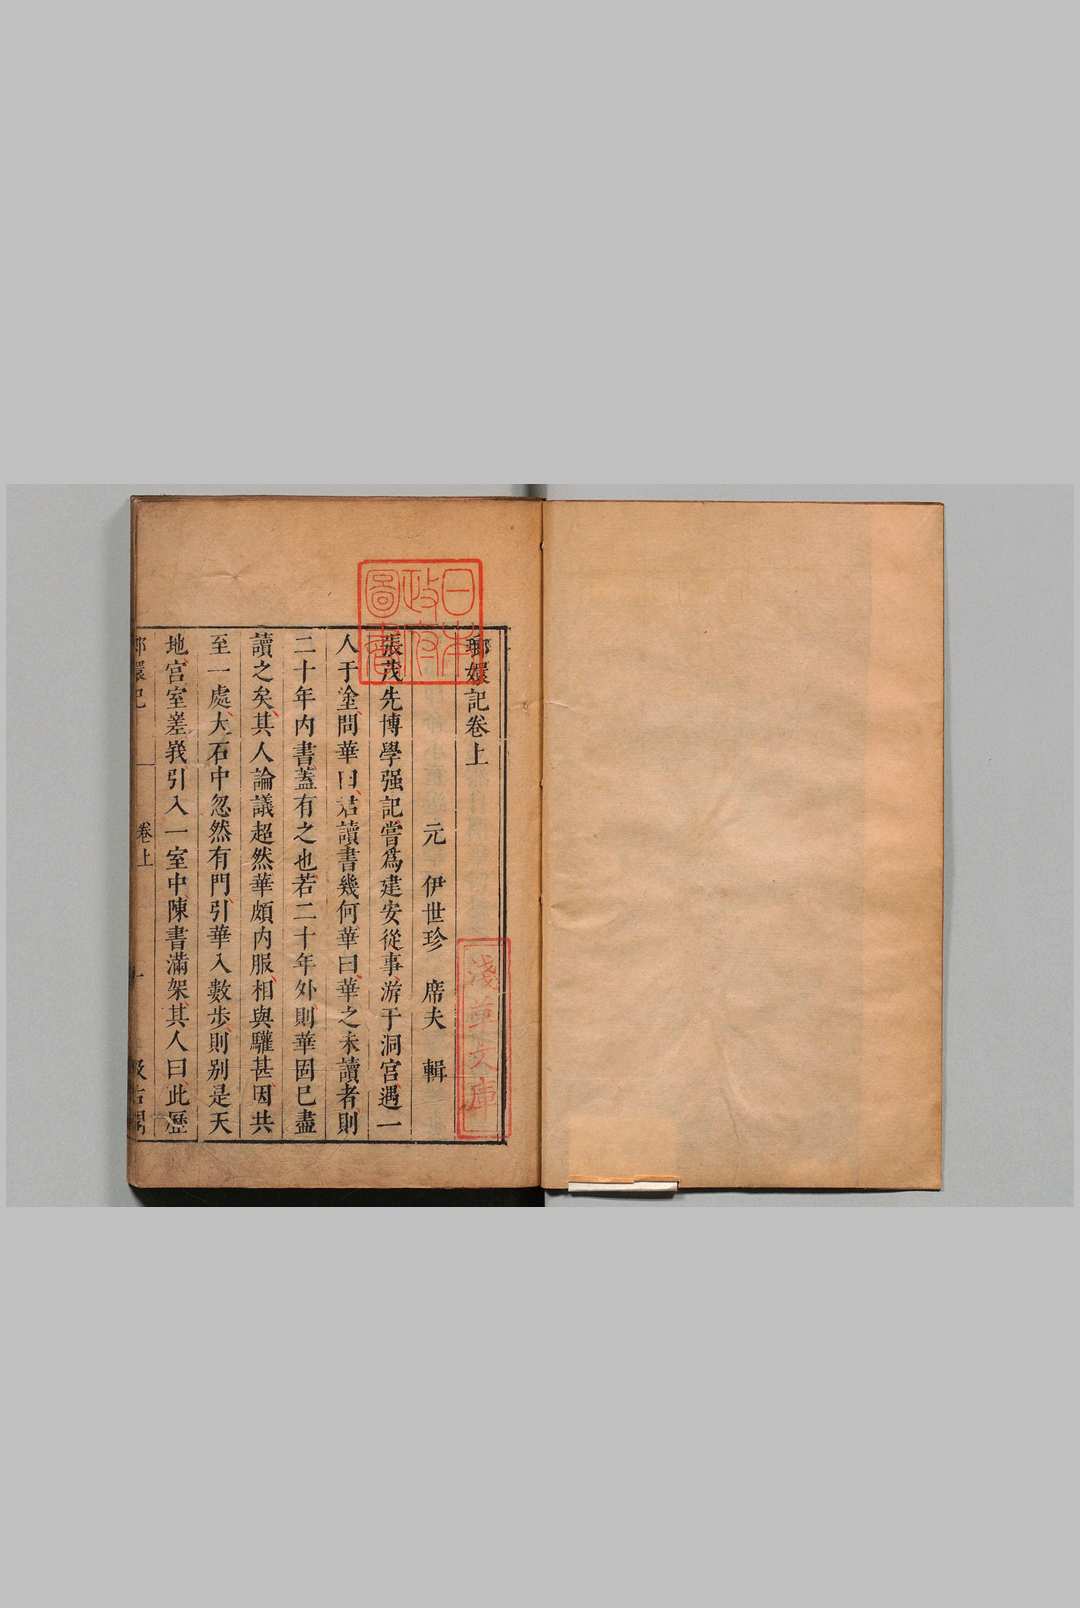 瑯嬛記卷上
元 伊世珍 席夫 輯
張茂先博學强記嘗爲建安從事游于洞宫遇一
人于塗問華曰君讀書幾何華曰華之未讀者則
二十年内書蓋有之也若二十年外則華固已盡
讀之矣其人論議超然華頗内服相與驩甚因共
至一處大石中忽然有門引華入數步則别是天
地宫室嵳峩引入一室中陳書滿架其人曰此歷
嬛記 卷上
日本政府圖書
淺草文庫